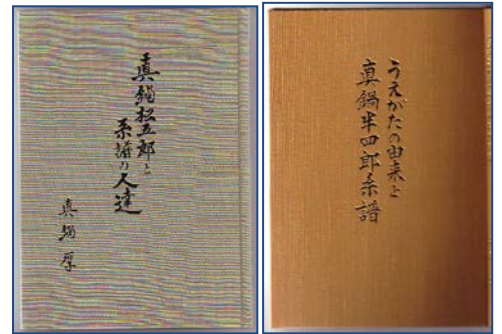 真鍋松五郎と
系譜の人達
真鍋 厚
うえがたの由来と
真鍋半四郎系譜